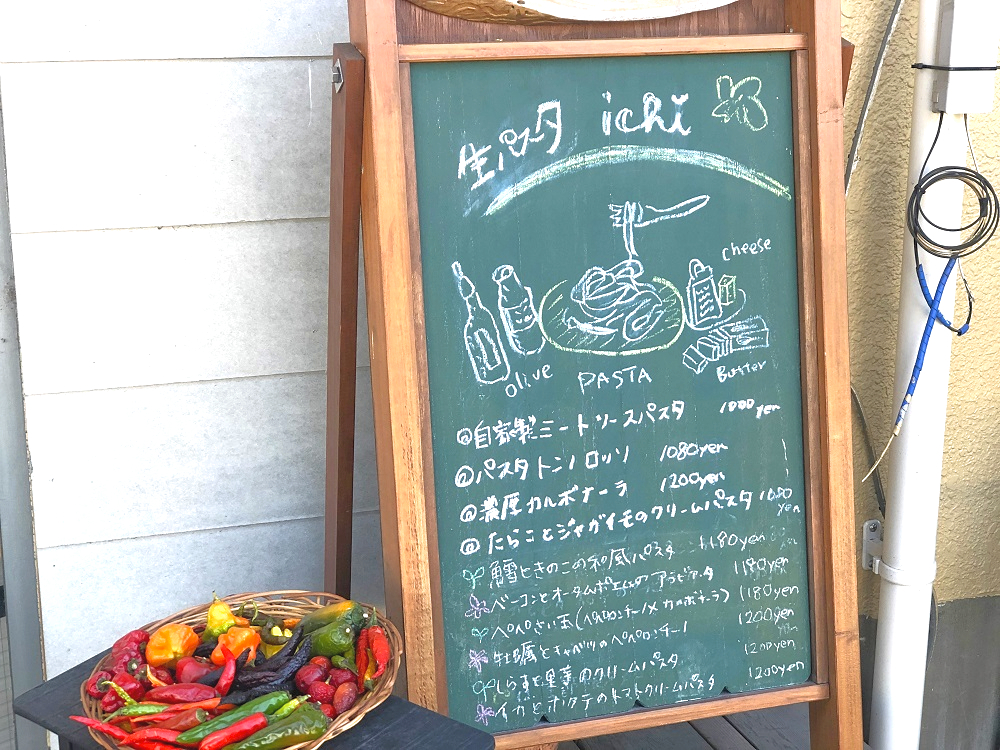 生パスタ ichi
cheese
olive
PASTA
Butter
@自家製ミートソースパスタ 1000yen
@パスタトンノロッソ 1080yen
@濃厚カルボナーラ 1200yen
@たらことジャガイモのクリームパスタ 1080yen
鱈ときのこの和風パスタ 1180yen
ベーコンとオータムポエムのアラビアータ 1180yen
ペペたま(ペペロンチーノ×カルボナーラ) 1180yen
牡蠣とキャベツのペペロンチーノ 1200yen
しらすと里芋のクリームパスタ 1200yen
イカとホタテのトマトクリームパスタ 1200yen